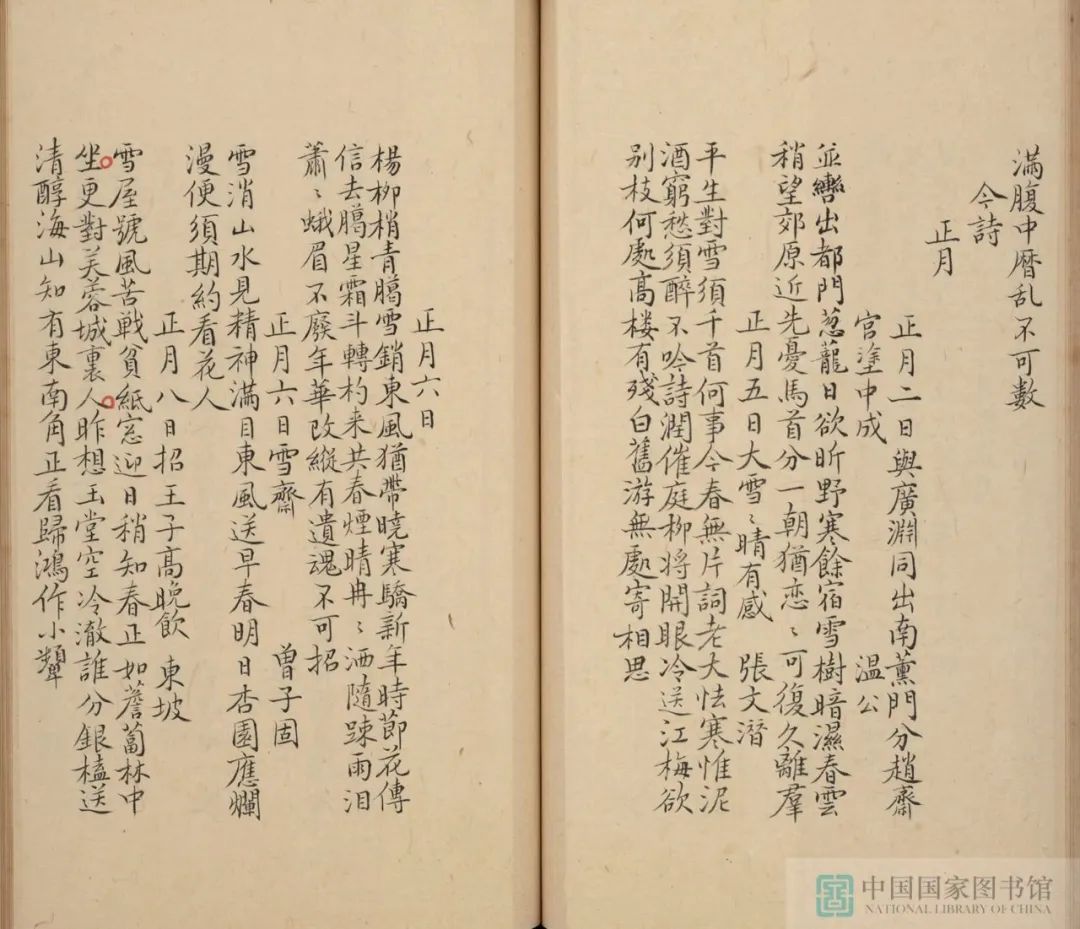 滿腹中曆乱不可數
今詩
正月
正月二日與廣淵同出南薰門分趙齋
宫塗中成　温公
並轡出都門葱蘢日欲昕野寒餘宿雪樹暗濕春雲
稍望郊原近先憂馬首分一朝猶恋〻可復久離羣
正月五日大雪〻晴有感　張文潛
平生對雪須千首何事今春無片詞老大怯寒惟泥
酒窮愁須醉不吟詩潤催庭柳將開眼冷送江梅欲
别枝何處高楼有殘白舊游無處寄相思
正月六日
楊柳梢青臈雪銷東風猶帶曉寒驕新年時節花傳
信去臈星霜斗轉杓来共春煙晴冉〻洒隨踈雨泪
蕭〻蛾眉不廢年華改縱有遺魂不可招
正月六日雪齋　曾子固
雪消山水見精神滿目東風送早春明日杏園應爛
漫便須期約看花人
正月八日招王子高晚飲　東坡
雪屋號風苦戦貧紙窓迎日稍知春正如薝蔔林中
坐更對芙蓉城裏人昨想玉堂空冷澈誰分銀榼送
清醇海山知有東南角正看歸鴻作小顰
中国国家图书馆
NATIONAL LIBRARY OF CHINA